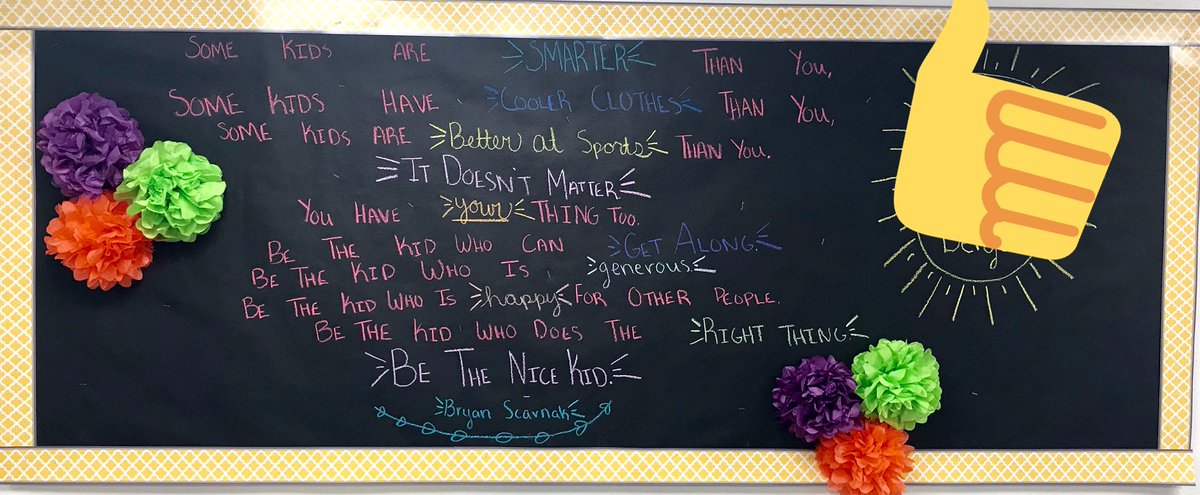 SOME KIDS ARE SMARTER THAN YOU,
SOME KIDS HAVE COOLER CLOTHES THAN YOU,
SOME KIDS ARE Better at Sports THAN YOU.
IT DOESN'T MATTER
YOU HAVE your THING TOO.
BE THE KID WHO CAN GET ALONG
BE THE KID WHO IS generous.
BE THE KID WHO IS happy FOR OTHER PEOPLE.
BE THE KID WHO DOES THE RIGHT THING
BE THE NICE KID.
Bryan Scavnak